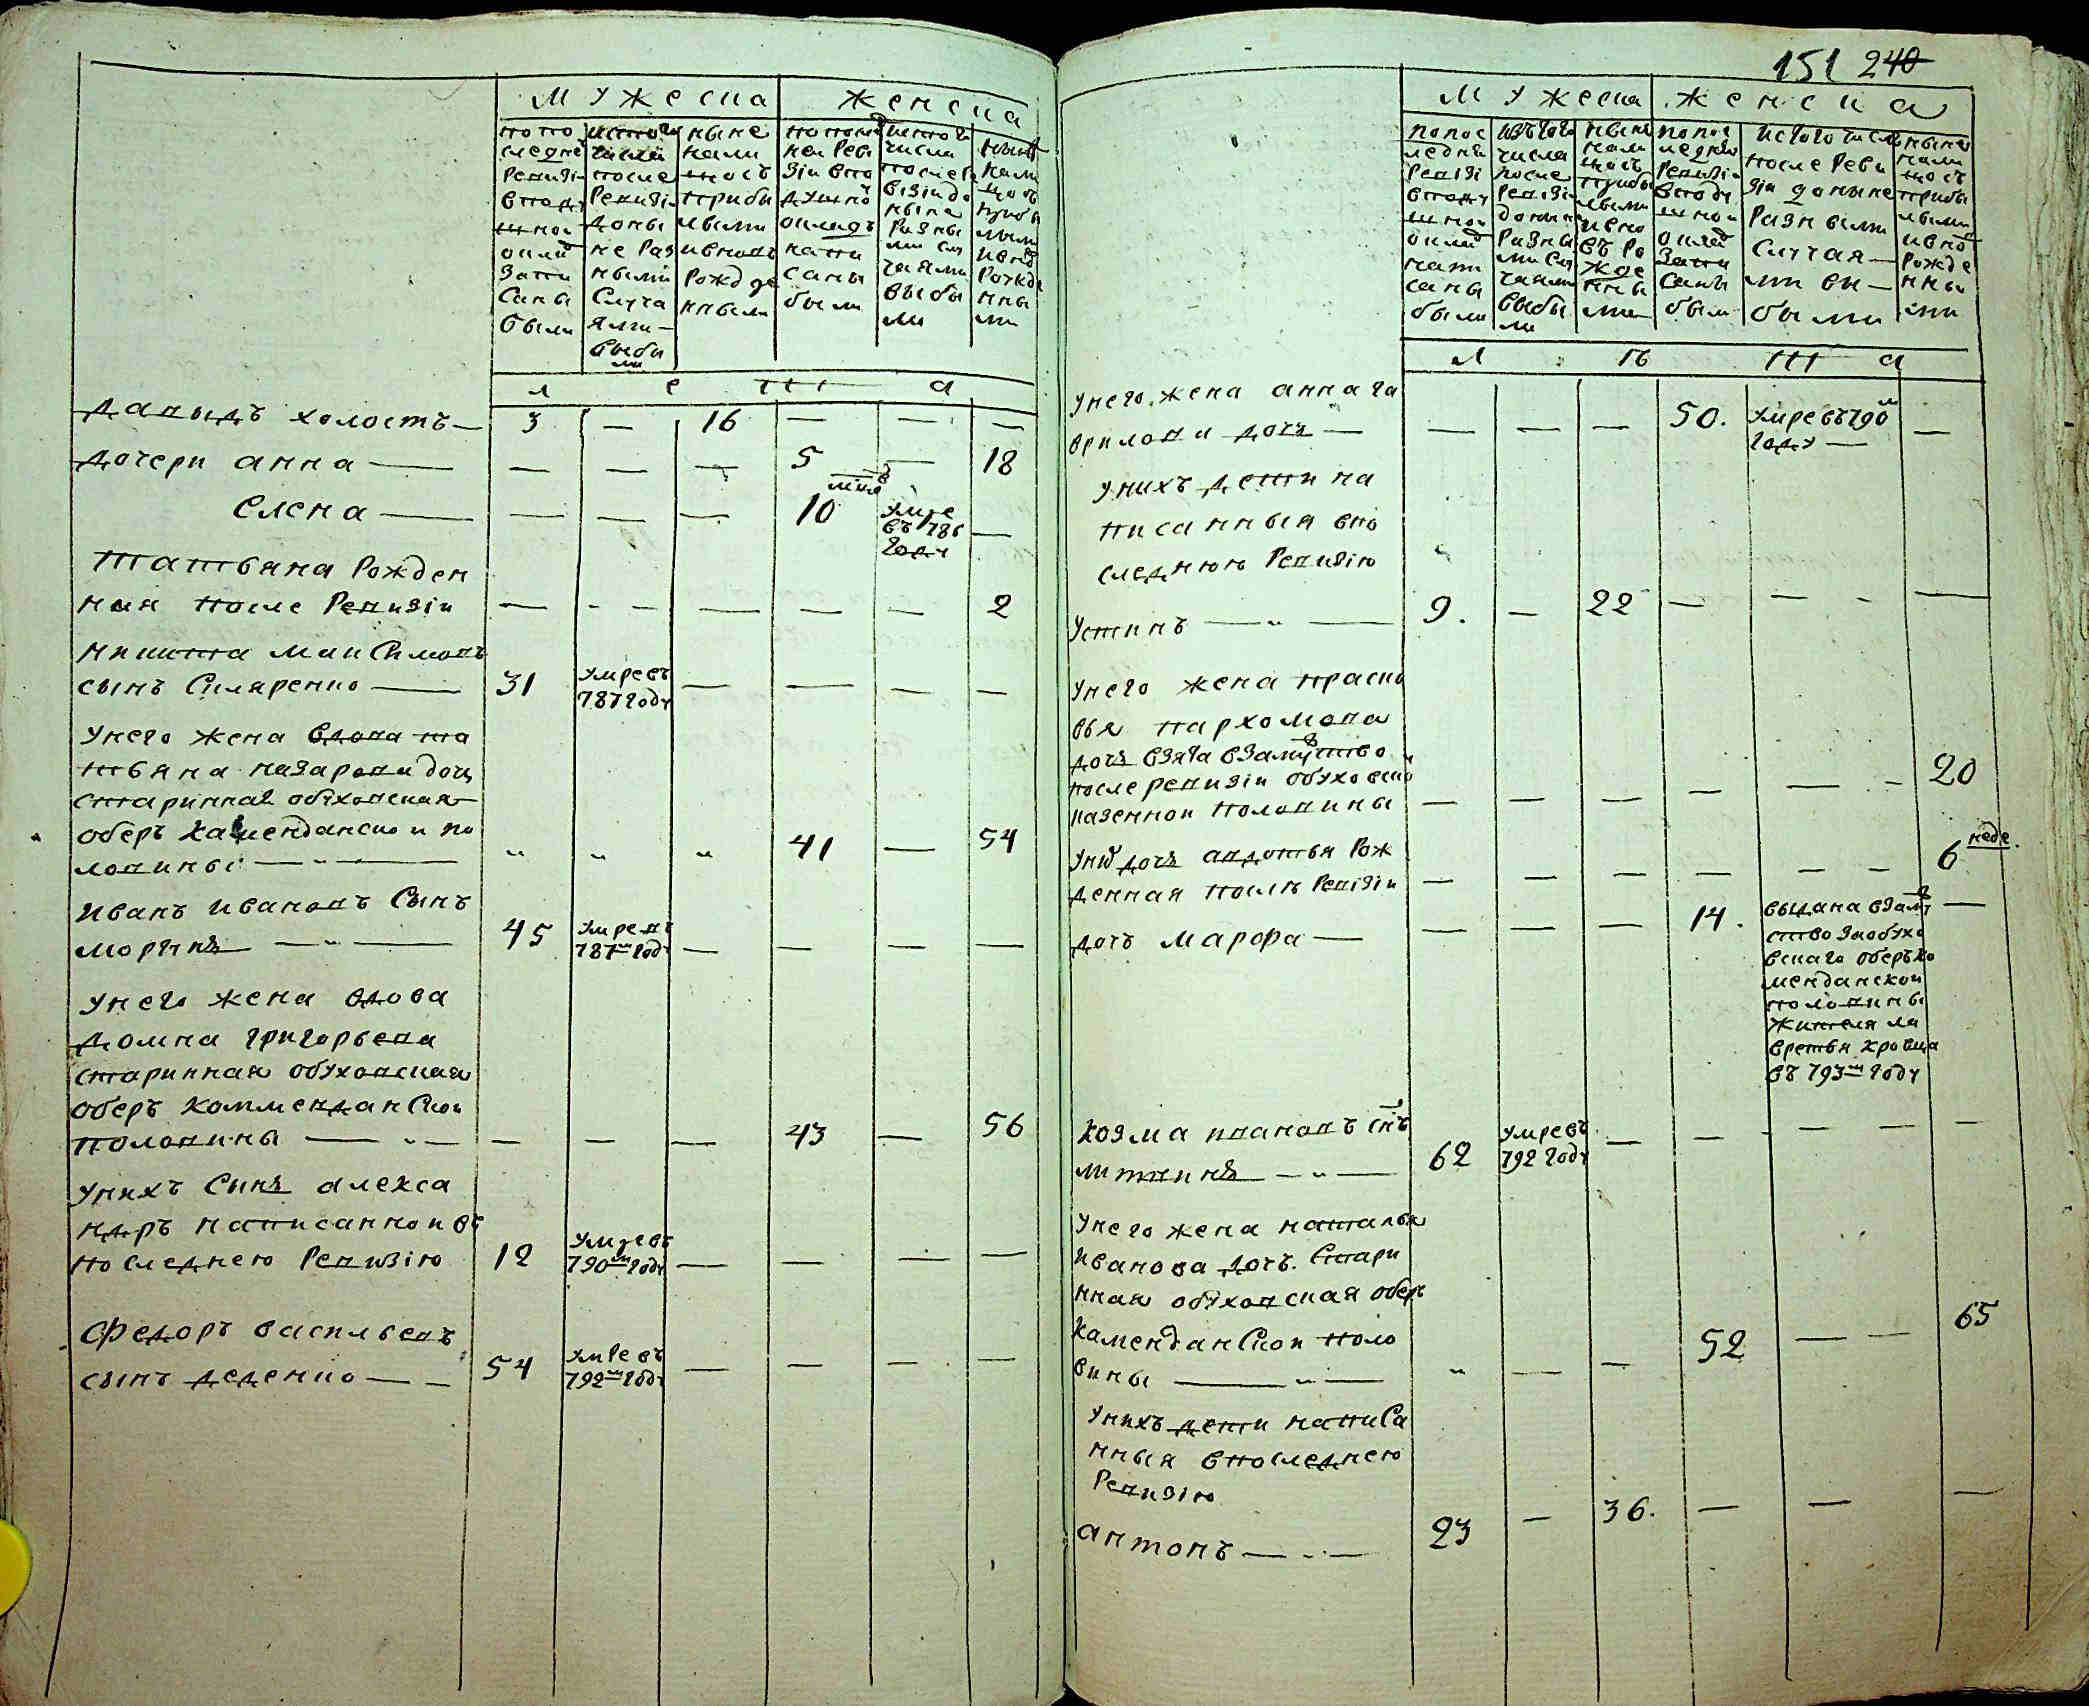 мужеска
женска
попо
следней
Ревизіи
вподу
шной
окладъ
запи
саны
были
исього
числа
после
Ревизіи
доны
не раз
ными
случа
ями
выбы
ли
ныне
нали
цосъ
прибы
лыми
ивновь
рожде
нными
попослед
ней Реви
зіи впо
душной
окладъ
напи
саны
были
исього
числа
после ре
визіи до
ныне
разны
ми слу
чаями
выбы
ли
ныне
нали
цосъ
прибы
лыми
ивнов
рожде
нны
ми
л е т а
давыдъ холостъ — 3 — 16 — — —
дочери анна — — — — 5 — 18
мсцв
елена — — — — 10 умре — 
въ 786
году
татьяна рожден
ная после Ревизіи — — — — — 2
никита максимовъ
сынъ скляренко — 31 умре въ — — — —
787 году
унего жена вдова та
тьяна назарова доч
старинная обуховская
оберъ камендански и по
ловины — „ — „ „ „ 41 — 54
иванъ ивановъ сынъ
моргунъ — „ — 45 умре въ — — — —
787м году
унего жена вдова
домна григорьева
старинная обуховская
оберъ комменданскои
половины — „ — — — — 43 — 56
унихъ сынъ алекса
ндръ написаннои въ
последнею Ревизію 12 умре въ — — — —
790м году
федоръ васильевъ
сынъ деденко — — 54 умре въ — — — —
792м году
151 240
мужеска
женска
попос
ледней
ревізі
вподу
шной
оклад
напи
саны
были
изътого
числа
после
ревізіи
доныне
разны
ми слу
чаями
выбы
ли
ныне
нали
цосъ
прибы
лыми
ивно
въ ро
жде
нны
ми
попос
ледней
Ревизіи
вподу
шной
оклад
запи
саны
были
истого числа
после реви
зіи доныне
разными
случая—
ми вы—
были
ныне
нали
цосъ
прибы
лыми
ивнов
рожде
нны
ми
л ѣ т а
унего жена анна га
врилова дочъ — — — — 50. умре въ 790м —
году —
унихъ дети на
писанныя впо
следнюю Ревизію
устинъ — „ — 9. — 22 — — - —
унего жена праско
вья пархомова
дочъ взята взамуство
послеревизіи обуховской
казенной половины — — — — — - 20
унихъ дочъ авдотья рож
денная послѣ Ревізіи — — — — — - 6 неде.
дочъ марфа — — — — 14. выдана взаму —
ство заобухо
вскаго оберъко
менданской
половины
жителя ла
врентья кровца
въ 793м году
козма ивановъ снъ
литвинъ — „ — 62 умре въ — — - — — —
792 году
унего жена наталья
иванова дочъ. стари
нная обуховская оберъ
каменданскои поло
вины — „ — „ — — 52 — — 65
унихъ дети написа
нныя впоследнею
Ревизію
антонъ — - — 23 — 36. — — —